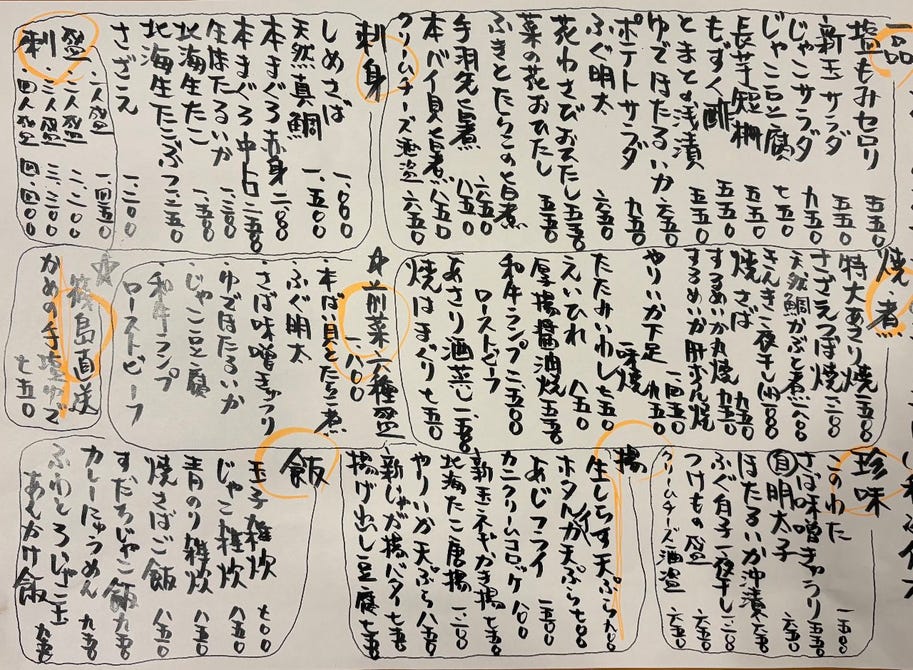 一品
塩もみセロリ 五五〇
新玉サラダ 五五〇
じゃこサラダ 九五〇
じゃこ豆腐 七五〇
長芋短冊 五五〇
もずく酢 五五〇
とまと浅漬 五五〇
ゆでほたるいか 六五〇
ポテトサラダ 九五〇
ふぐ明太 六五〇
花わさびおひたし 五五〇
菜の花おひたし 五五〇
ふきとたらこの旨煮 六五〇
手羽先旨煮 八五〇
本バイ貝旨煮 八五〇
クリームチーズ酒盗 六五〇
刺身
しめさば 一、〇〇〇
天然真鯛 一、五〇〇
本まぐろ赤身 二、〇〇〇
本まぐろ中トロ 二、五〇〇
生ほたるいか 一、三〇〇
北海生たこ 一、五〇〇
北海生たこぶつ 一、三五〇
さざえ 一、二〇〇
刺盛
一人盛 一、四五〇
二人盛 二、二〇〇
三人盛 三、三〇〇
四人盛 四、四〇〇
焼 煮
特大あさり焼 一、五〇〇
さざえつぼ焼 一、二〇〇
天然鯛かぶと煮 一、二〇〇
きんき一夜干し
焼さば 九五〇
するめいか丸焼 九五〇
するめいか肝ホイル焼 一、四五〇
やりいか下足一味焼 九五〇
たたみいわし 七五〇
えいひれ 八五〇
厚揚醤油焼 五五〇
和牛ランプローストビーフ 二、五〇〇
あさり酒蒸し 一、一五〇
焼はまぐり 七五〇
前菜六種盛 一、八〇〇
本ばい貝とたらこ煮
ふぐ明太
さば味噌きゅうり
ゆでほたるいか
じゃこ豆腐
和牛ランプ
ローストビーフ
☆篠島直送
かめの手塩ゆで 七五〇
珍味
このわた 一、五〇〇
さば味噌きゅうり 五五〇
自明太子 六五〇
ほたるいか沖漬 六五〇
ふぐ白子一夜干し 一、二〇〇
つけもの盛 六五〇
クリームチーズ酒盗 六五〇
揚
生しらす天ぷら 九〇〇
ホタルイカ天ぷら 七〇〇
あじフライ 一、五〇〇
カニクリームコロッケ 八〇〇
新玉ネギかき揚 七五〇
北海たこ唐揚 一、二〇〇
やりいか天ぷら 八五〇
新じゃが揚バター 七五〇
揚げ出し豆腐 七五〇
飯
玉子雑炊 七〇〇
じゃこ雑炊 八五〇
青のり雑炊 八五〇
焼さばご飯 八五〇
すだちじゃこ飯 九五〇
カレーにゅうめん 九五〇
ふわとろじゃこ玉あんかけ飯 九五〇